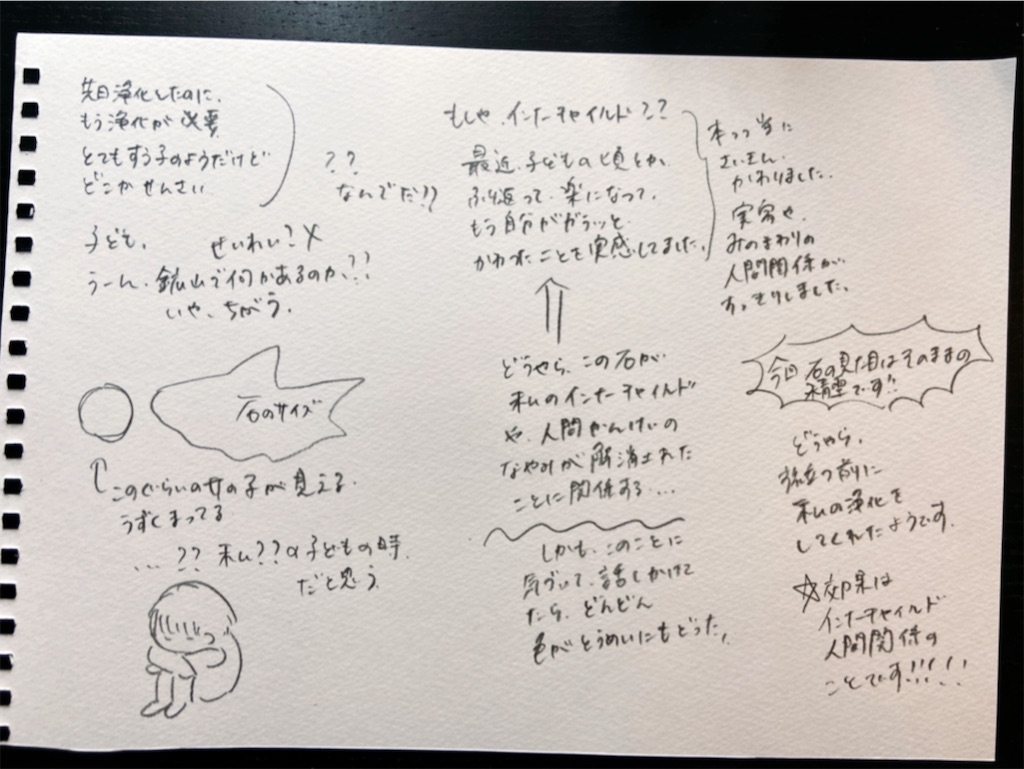 先日浄化したのに、
もう浄化が必要
とてもする子のようだけど
どこかせんさい
??
なんでだ!?
子ども、 せいれい?×
うーん、鉱山で何かあるのか、??
いや、ちがう。
石のサイズ
このぐらいの女の子が見える。
うずくまってる
...?? 私??の子どもの時
だと思う。
もしや、インナーチャイルド??
最近、子どもの頃とか、
ふり返って、楽になって、
もう自分がガラッと
かわったことを実感してました。
本っっ当に
さいきん、
かわりました。
実家や、
みのまわりの
人間関係が
すっきりしました。
どうやら、この石が
私のインナーチャイルド
や、人間かんけいの
なやみが解消された
ことに関係する...
しかも、このことに
気づいて、話しかけて
たら、どんどん
色がとうめいにもどった。
今回 石の見た目はそのままの
精霊です!!
どうやら、
旅立つ前に
私の浄化を
してくれたようです。
☆効果は
インナーチャイルド
人間関係の
ことです!!!!!